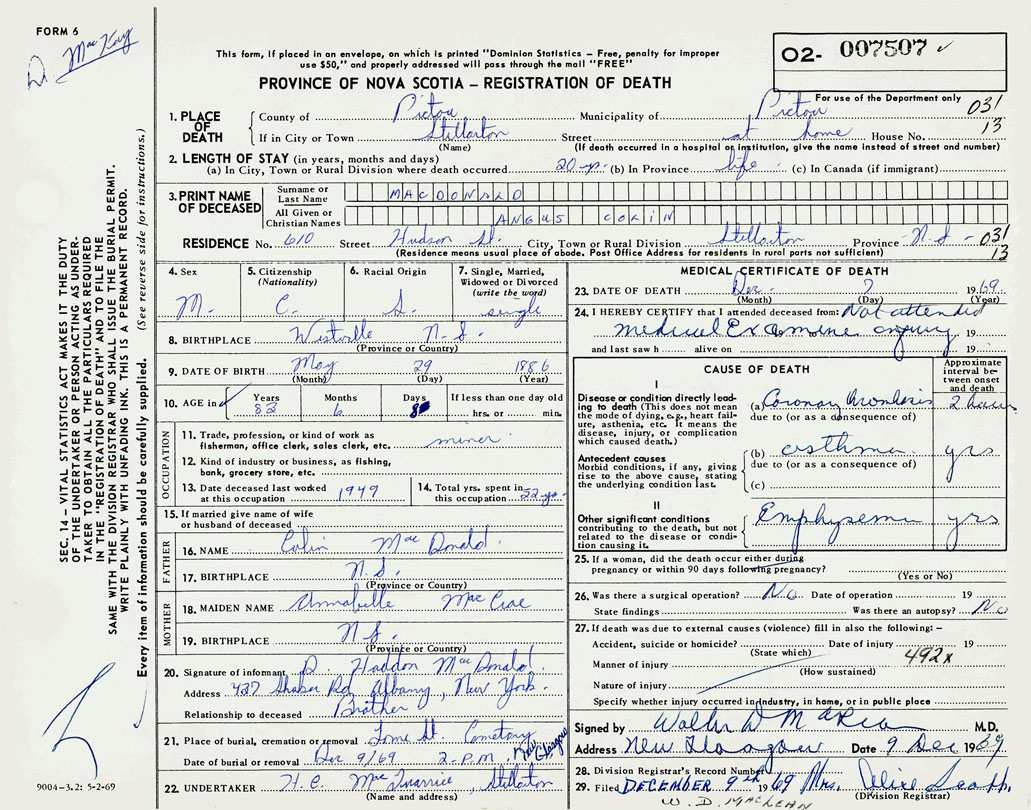 FORM 6
D. MacKay
This form, if placed in an envelope, on which is printed "Dominion Statistics – Free, penalty for improper
use $50," and properly addressed will pass through the mail "FREE"
PROVINCE OF NOVA SCOTIA – REGISTRATION OF DEATH
O2- 007507
For use of the Department only
1. PLACE OF DEATH County of Pictou Municipality of Pictou 031
If in City or Town Stellarton Street at home House No. 13
(Name) (If death occurred in a hospital or institution, give the name instead of street and number)
2. LENGTH OF STAY (in years, months and days)
(a) In City, Town or Rural Division where death occurred 20 yr. (b) In Province life (c) In Canada (if immigrant)
3. PRINT NAME OF DECEASED Surname or Last Name MACDONALD
All Given or Christian Names ANGUS COLIN
RESIDENCE No. 610 Street Hudson St. City, Town or Rural Division Stellarton Province N-S- 031
(Residence means usual place of abode. Post Office Address for residents in rural parts not sufficient) 13
4. Sex M.
5. Citizenship (Nationality) C.
6. Racial Origin S.
7. Single, Married, Widowed or Divorced (write the word) single
8. BIRTHPLACE Westville N-S.
(Province or Country)
9. DATE OF BIRTH May 29 1886
(Month) (Day) (Year)
10. AGE in Years 83 Months 6 Days 8 If less than one day old hrs. or min.
OCCUPATION
11. Trade, profession, or kind of work as fisherman, office clerk, sales clerk, etc. miner
12. Kind of industry or business, as fishing, bank, grocery store, etc.
13. Date deceased last worked at this occupation 1949
14. Total yrs. spent in this occupation 22 yr.
15. If married give name of wife or husband of deceased
FATHER
16. NAME Colin MacDonald.
17. BIRTHPLACE N.S.
(Province or Country)
MOTHER
18. MAIDEN NAME Annabelle MacCrae
19. BIRTHPLACE N S.
(Province or Country)
20. Signature of informant D. Haddon MacDonald.
Address 427 Shaker Rd, Albany, New York.
Relationship to deceased Brother
21. Place of burial, cremation or removal Lorne St. Cemetery
Date of burial or removal Dec 9/69 2-P.M. New Glasgow
22. UNDERTAKER H.C. Stellarton
(Name and address)
MEDICAL CERTIFICATE OF DEATH
23. DATE OF DEATH Dec. 7 1969
(Month) (Day) (Year)
24. I HEREBY CERTIFY that I attended deceased from: Not attended
Medical Examine enquiry 19
and last saw h alive on 19
CAUSE OF DEATH
Approximate interval between onset and death
I
Disease or condition directly leading to death (This does not mean the mode of dying, e.g., heart failure, asthenia, etc. It means the disease, injury, or complication which caused death.)
(a) Coronary thrombosis 2 hours
due to (or as a consequence of)
Antecedent causes
Morbid conditions, if any, giving rise to the above cause, stating the underlying condition last.
(b) asthma yrs
due to (or as a consequence of)
(c)
II
Other significant conditions contributing to the death, but not related to the disease or condition causing it.
Emphysema yrs
25. If a woman, did the death occur either during pregnancy or within 90 days following pregnancy?
(Yes or No)
26. Was there a surgical operation? No Date of operation 19
State findings Was there an autopsy? No
27. If death was due to external causes (violence) fill in also the following: –
Accident, suicide or homicide? Date of injury 19
(State which)
Manner of injury 492x
(How sustained)
Nature of injury
Specify whether injury occurred in industry, in home, or in public place
Signed by M.D.
Address New Glasgow Date 9 Dec 1969
28. Division Registrar's Record Number
29. Filed DECEMBER 9th 1969 Mrs.
(Division Registrar)
W. D. MACLEAN
SEC. 14 – VITAL STATISTICS ACT MAKES IT THE DUTY
OF THE UNDERTAKER OR PERSON ACTING AS UNDER-
TAKER TO OBTAIN ALL THE PARTICULARS REQUIRED
IN THE "REGISTRATION OF DEATH" AND TO FILE THE
SAME WITH THE DIVISION REGISTRAR WHO SHALL ISSUE THE BURIAL PERMIT.
WRITE PLAINLY WITH UNFADING INK. THIS IS A PERMANENT RECORD.
Every item of information should be carefully supplied. (See reverse side for instructions.)
9004-3.2: 5-2-69